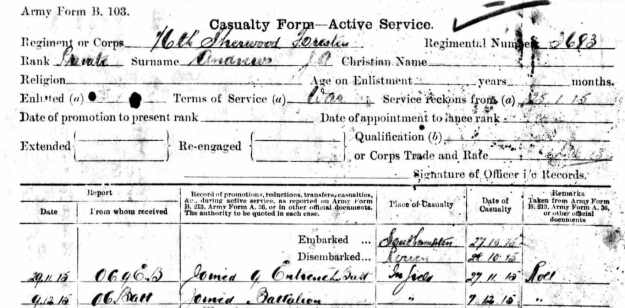 Army Form B. 103.
Casualty Form—Active Service.
Regiment or Corps Sherwood Foresters Regimental Number 2683
Rank Private Surname Andrews J Christian Name
Religion Age on Enlistment years months.
Enlisted (a) Terms of Service (a) War Service reckons from (a) 1.15
Date of promotion to present rank Date of appointment to lance rank
Extended Re-engaged Qualification (b)
or Corps Trade and Rate
Signature of Officer i/c Records.
Report
Date From whom received
Record of promotions, reductions, transfers, casualties,
&c., during active service, as reported on Army Form
B. 213, Army Form A. 36, or in other official documents.
The authority to be quoted in each case.
Place of Casualty
Date of
Casualty
Remarks
Taken from Army Form
B. 213, Army Form A. 36,
or other official
documents
Embarked ... Southampton 27.10.15
Disembarked ... Rouen 28.10.15
29.11.15 Joined 9 Entrench Batt In field 27.11.15 Roll
9.12.15 OC Batt Joined Battalion " 7.12.15